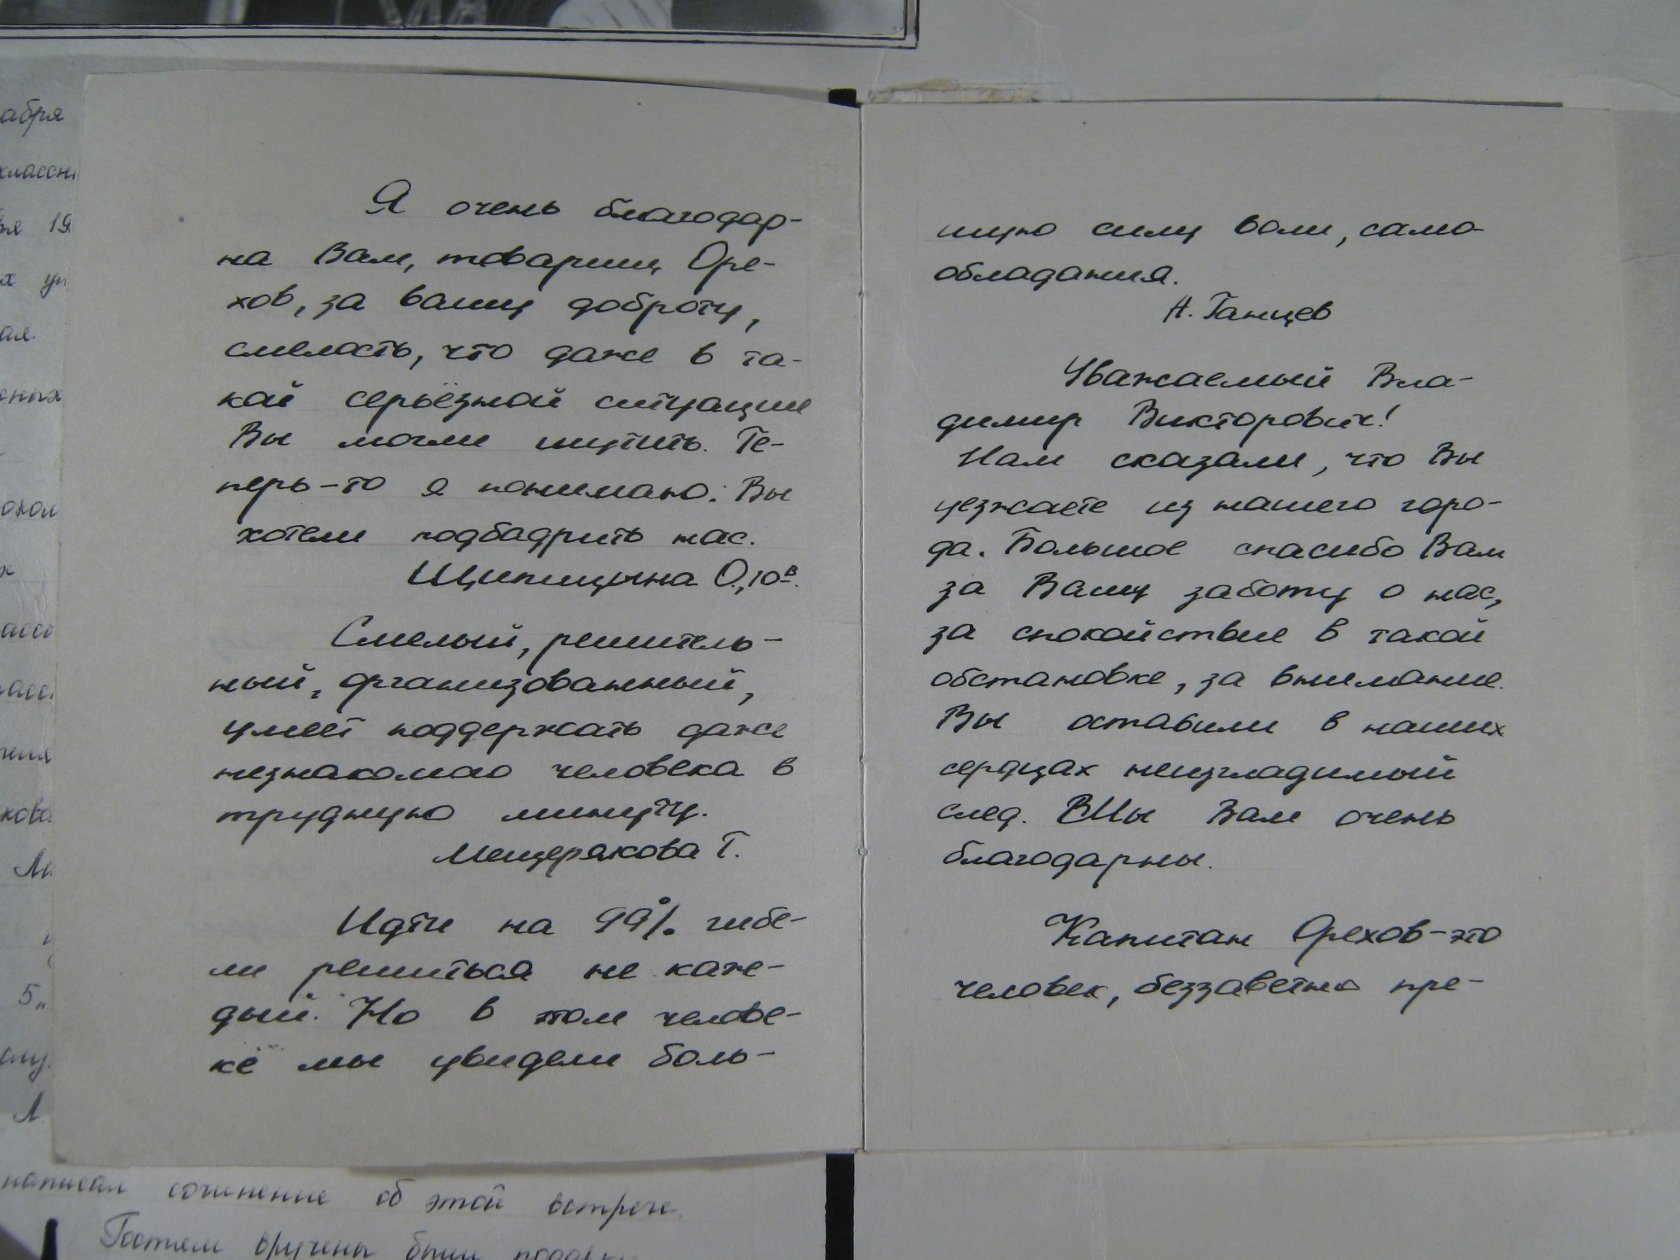 Я очень благодар-
на Вам, товарищ Оре-
хов, за вашу доброту,
смелость, что даже в та-
кой серьёзной ситуации
Вы могли шутить. Те-
перь-то я понимаю: Вы
хотели подбадрить нас.
Щипицына О., 10в.
Смелый, решитель-
ный, организованный,
умеет поддержать даже
незнакомого человека в
трудную минуту.
Мещерякова Г.
Идти на 99% гибе-
ли решиться не каж-
дый. Но в этом челове-
ке мы увидели боль-
шую силу воли, само-
обладания.
А. Ганцев
Уважаемый Вла-
димир Викторович!
Нам сказали, что Вы
уезжаете из нашего горо-
да. Большое спасибо Вам
за Вашу заботу о нас,
за спокойствие в такой
обстановке, за внимание.
Вы оставили в наших
сердцах неизгладимый
след. Мы Вам очень
благодарны.
Капитан Орехов-это
человек, беззаветно пре-
абря
19
ая
5"
написал сочинение об этой встрече.
Гостям вручены были